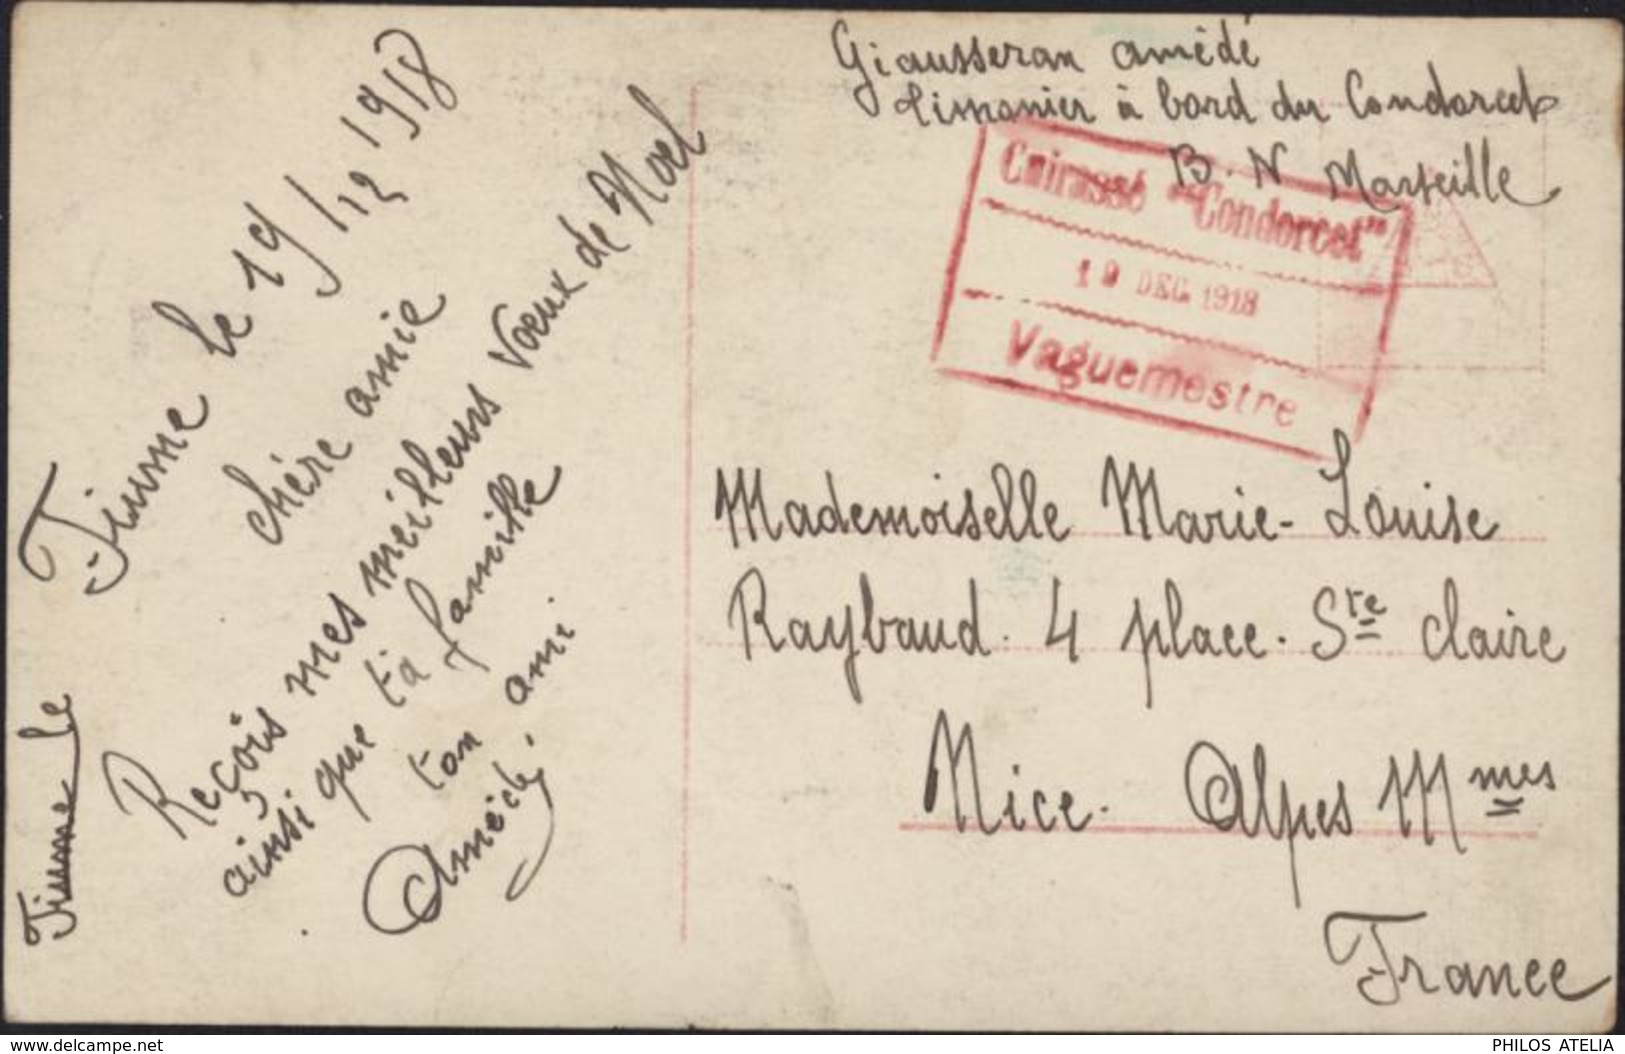 Giausseran amédé
timonier à bord du Condorcet
B. N Marseille
Cuirassé "Condorcet"
19 DEC. 1918
Vaguemestre
Fiume le 19/12 1918
chère amie
Reçois mes meilleurs vœux de Noel
ainsi que ta famille
ton ami
Amédé
Fiume le
Mademoiselle Marie-Louise
Raybaud. 4 place. Ste claire
Nice. Alpes Mmes
France
delcampe.net
PHILOS ATELIA